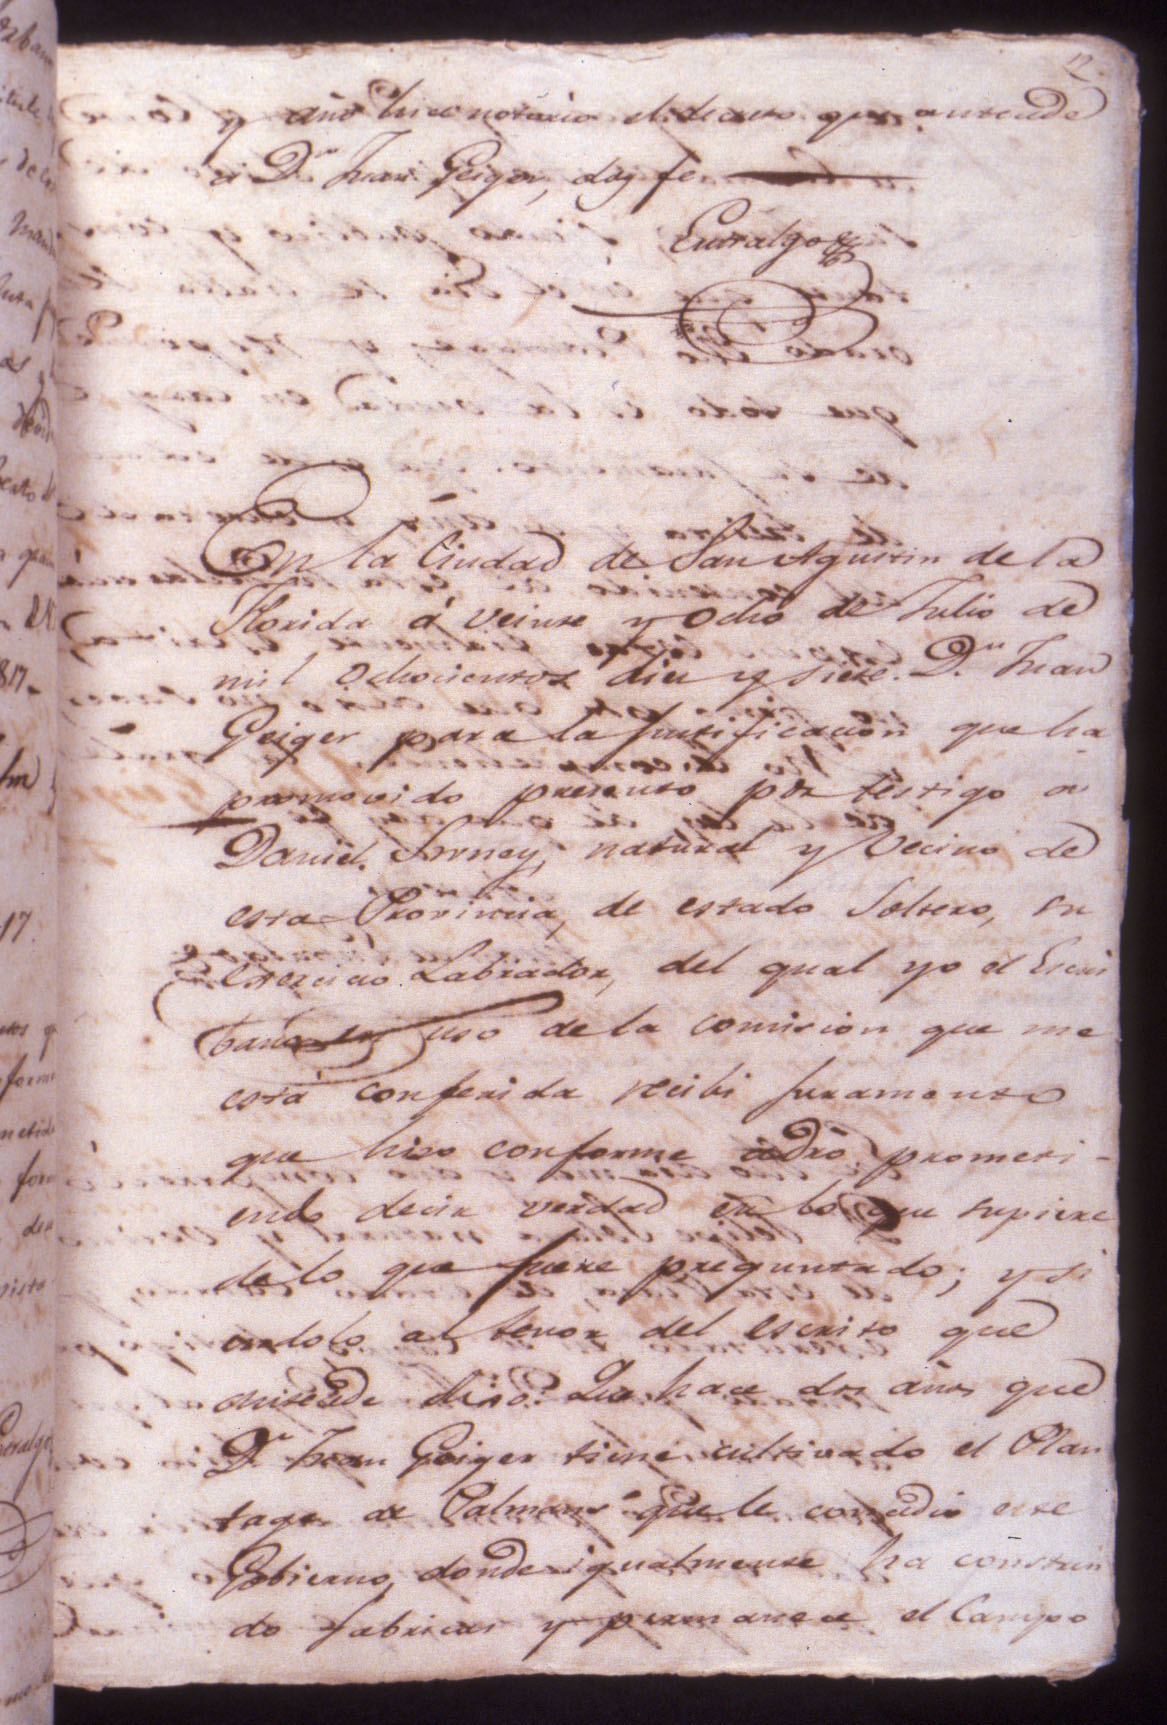 12
y año hice notorio el decreto que antecede
a Dn Juan Geiger, doy fe
Entralgo
En la Ciudad de San Agustin de la
Florida á veinte y Ocho de Julio de
mil Ochocientos diez y siete. Dn Juan
Geiger para la justificacion que ha
promovido presento por testigo a
Daniel, natural y Vecino de
esta Provincia, de estado Soltero, su
exercicio Labrador, del qual yo el Escri
bano en uso de la comision que me
está conferida recibi juramento
que hiso conforme a dro prometi-
endo decir verdad en lo que supiere
de lo que fuere preguntado; y si
endolo al tenor del escrito que
antecede dixo: Que hace dos años que
Dn Juan Geiger tiene cultivado el Plan
tage de Palmans que le concedio este
Gobierno, donde igualmente ha construi
do fabricas y permanece el Campo